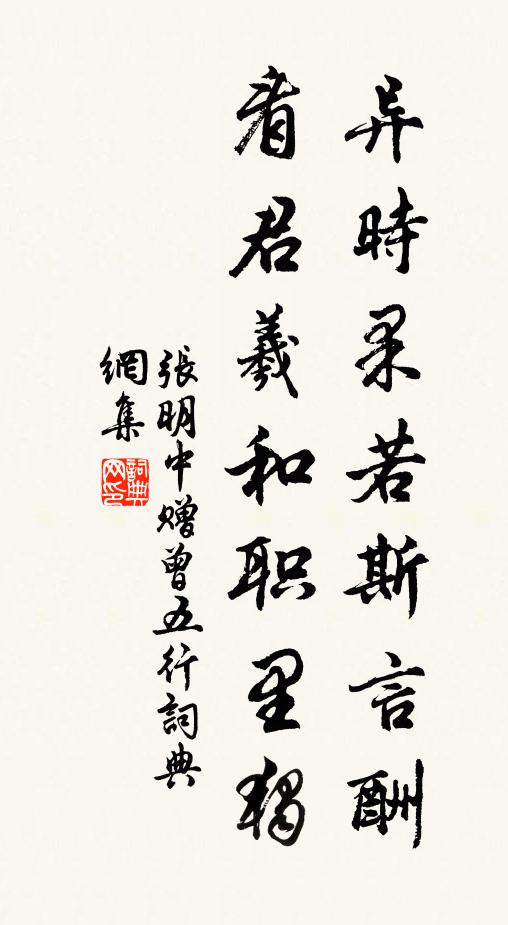 异時果若斯言酬
看君羲和职里
張明中赠曾五行詞典
網集
詞典
网印